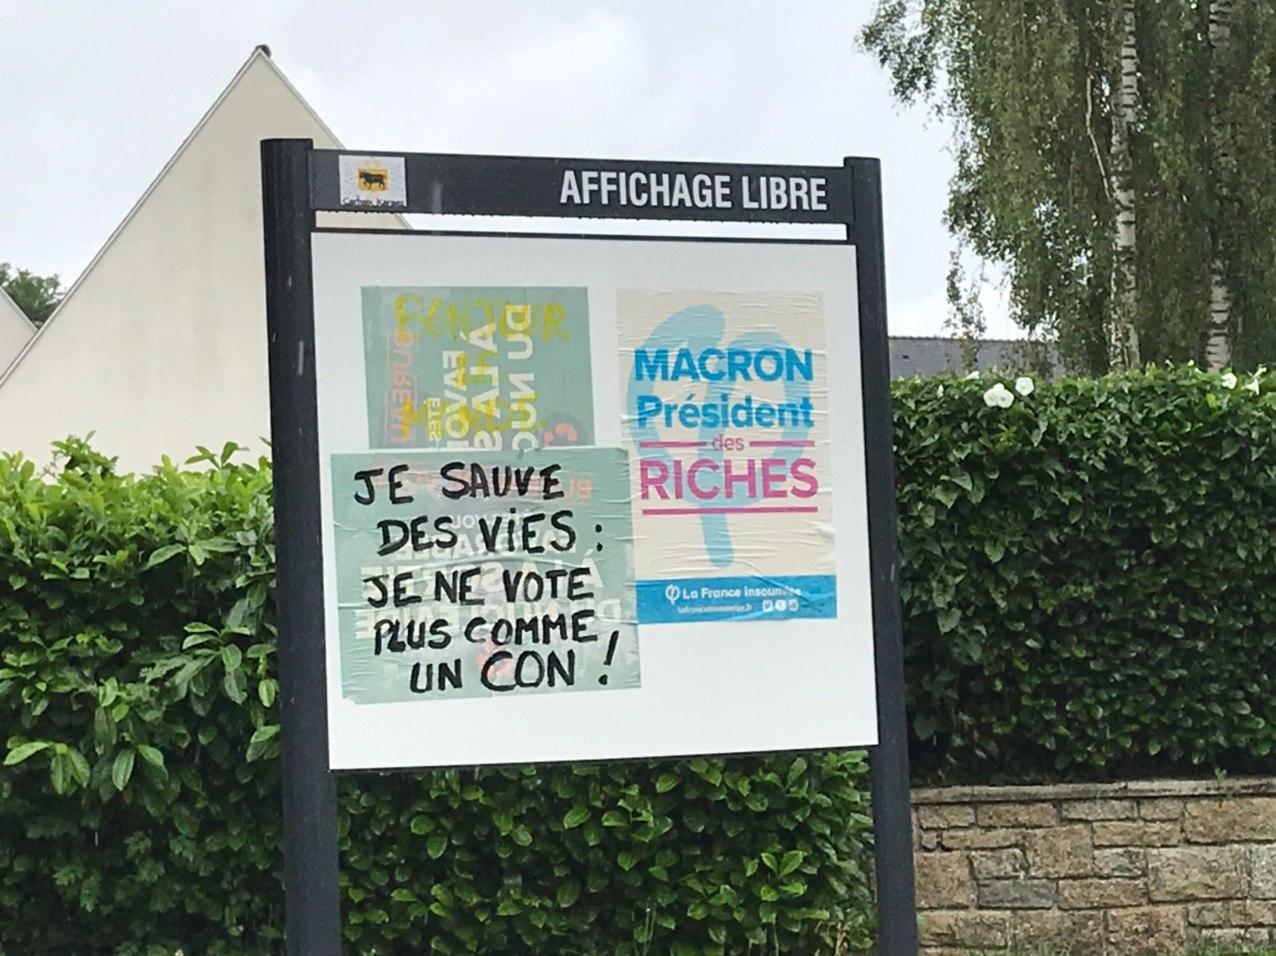 AFFICHAGE LIBRE
BONJOUR
BUREAU
ÊTES
À LA
DU
JE SAUVE
DES VIES :
JE NE VOTE
PLUS COMME
UN CON !
MACRON
Président
des
RICHES
La France insoumise
lafranceinsoumise.fr